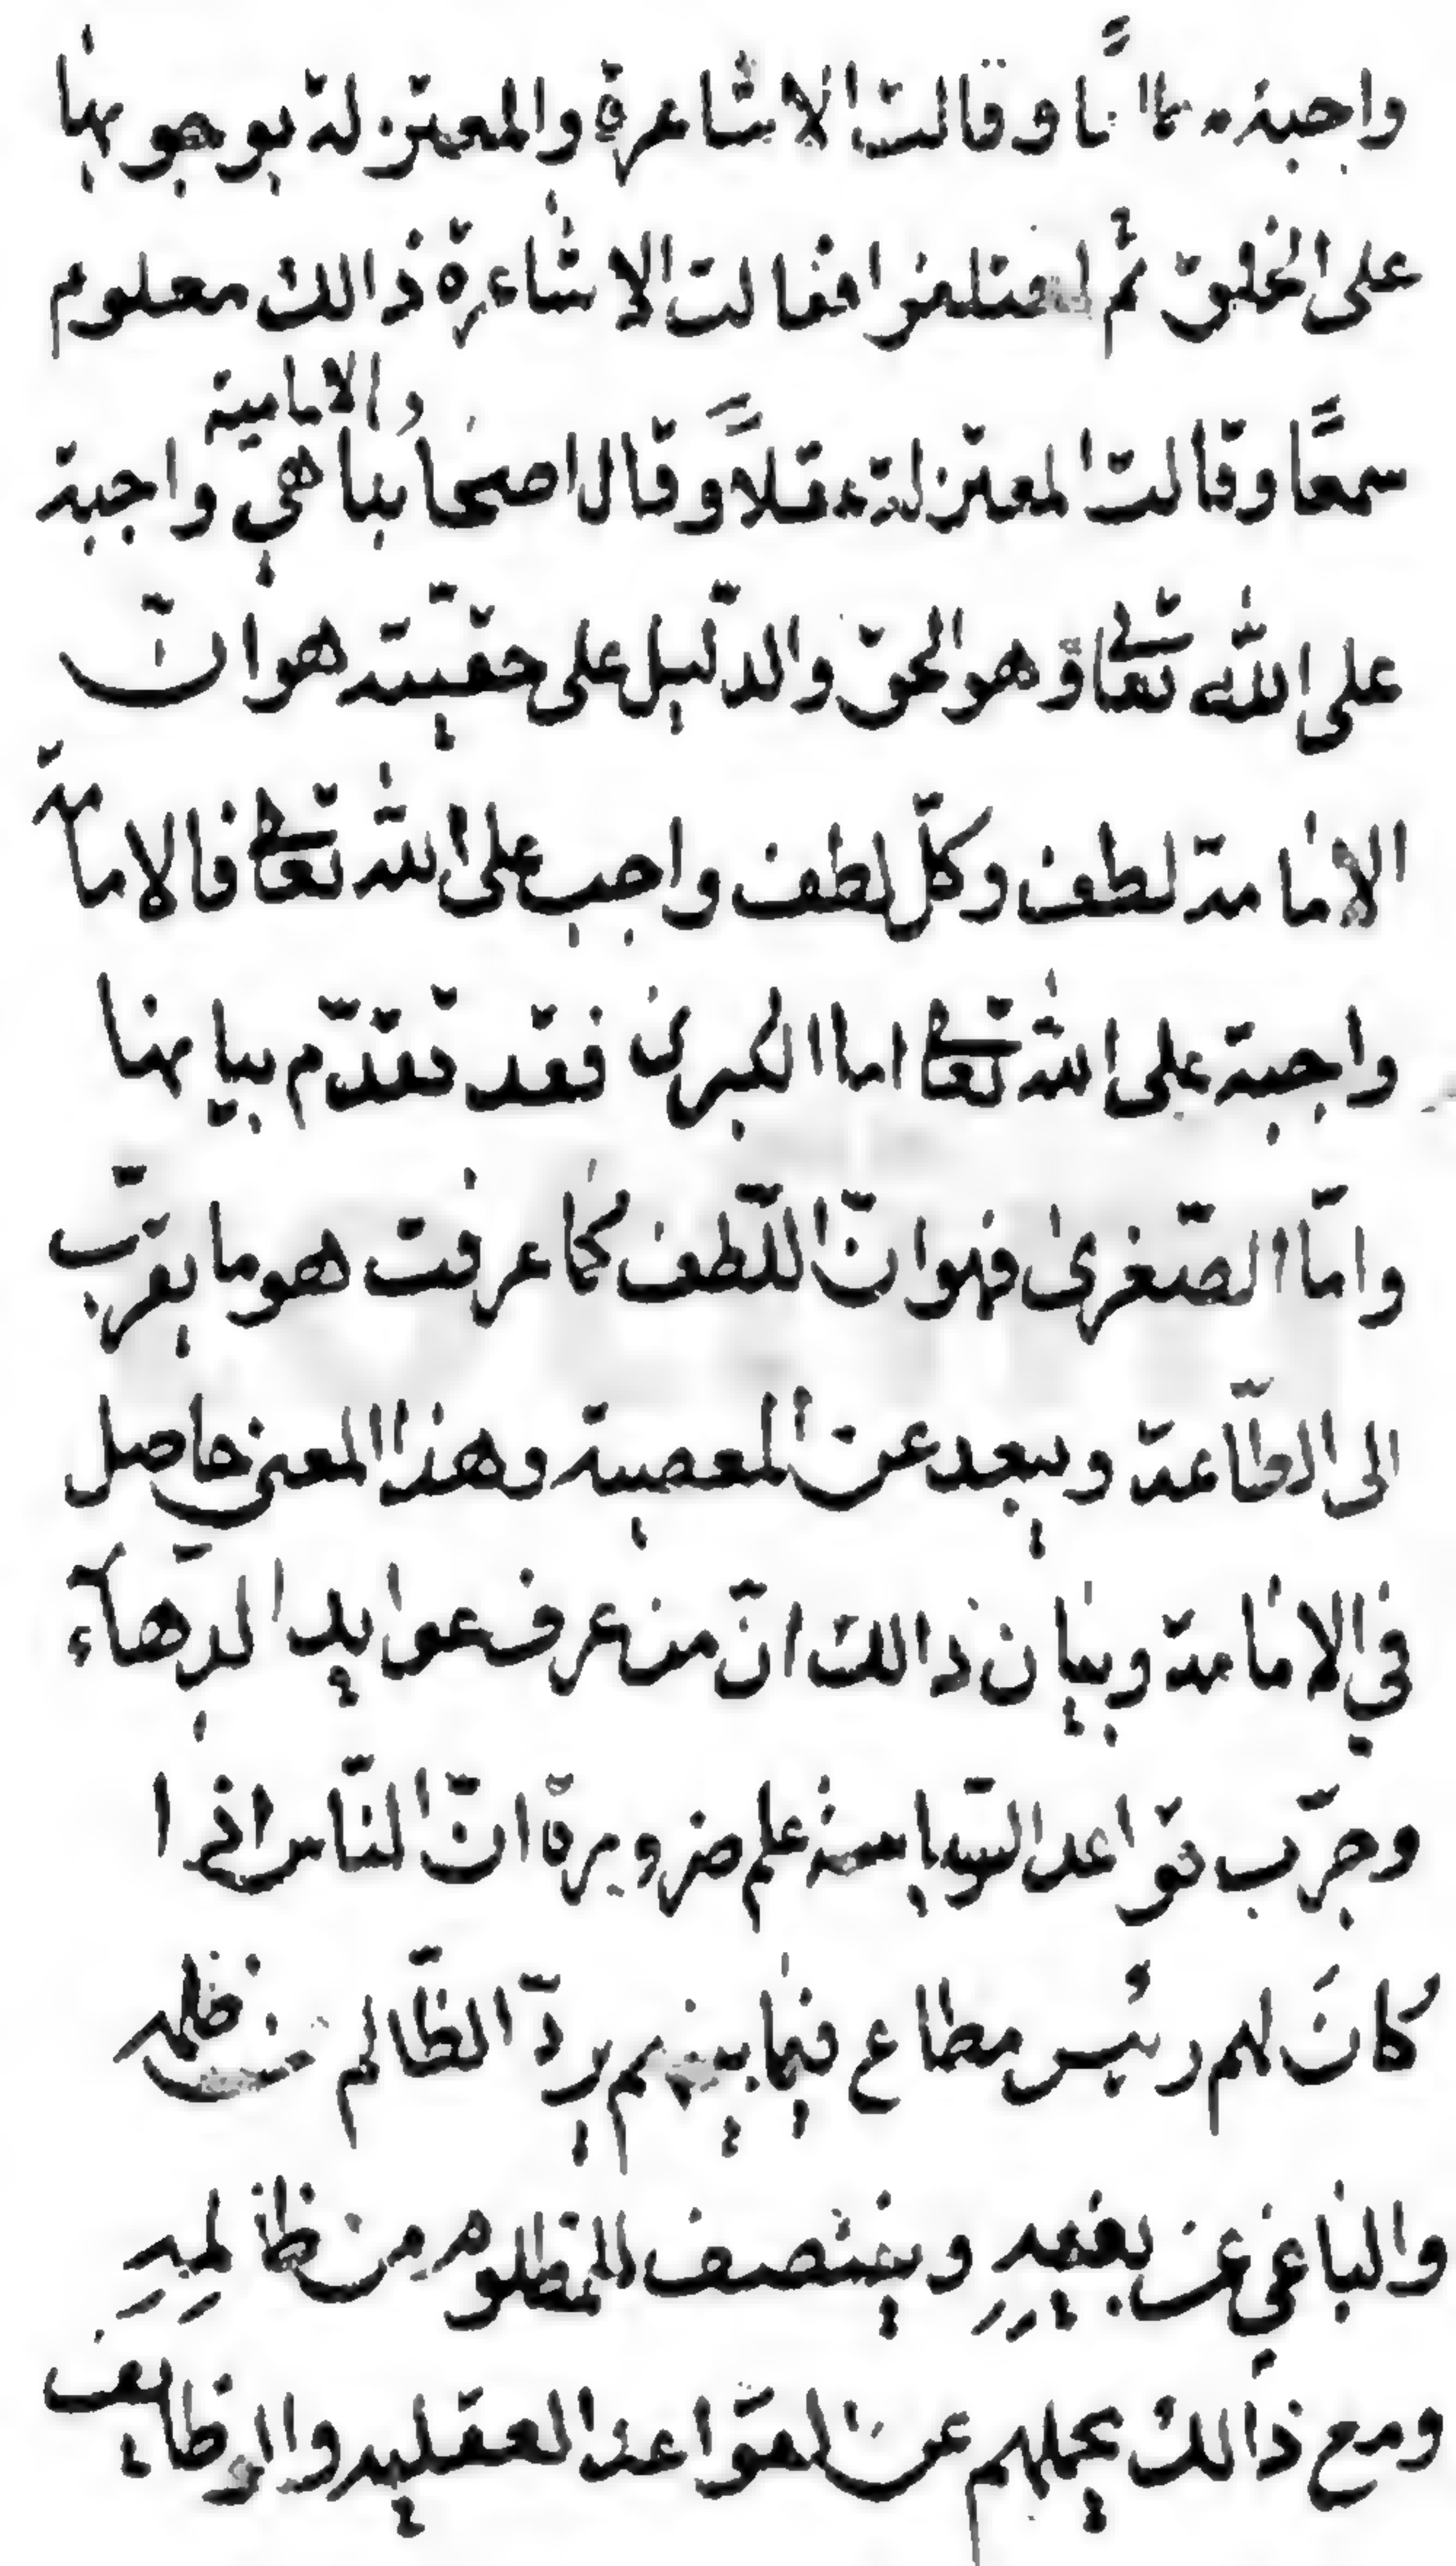 واجبة وقالت الاشاعرة والمعتزلة بوجوبها
على الخلق ثم اختلفوا فقالت الاشاعرة ذالك معلوم
سمعًا وقالت المعتزلة عقلاً وقال اصحابنا والامامية هي واجبة
على الله تعالى وهو الحق والدّليل على حقيّته هو انّ
الامامة لطف وكلّ لطف واجب على الله تعالى فالامامة
واجبة على الله تعالى اما الكبرى فقد تقدّم بيانها
وامّا الصّغرىٰ فهو انّ اللّطف كما عرفت هو ما يقرّب
الى الطّاعة ويبعد عن المعصية وهذا المعنى حاصل
في الامامة وبيان ذالك انّ من عرف عوايد الدّهاء
وجرّب قواعد السّياسة علم ضرورة انّ النّاس اذا
كانَ لهم رئيس مطاع فيما بينهم يردّ الظّالم عن ظلمه
والباغي عن بغيهِ وينتصف للمظلوم من ظالمِهِ
ومع ذالك يحملهم عن القواعد العقليه والوظايف